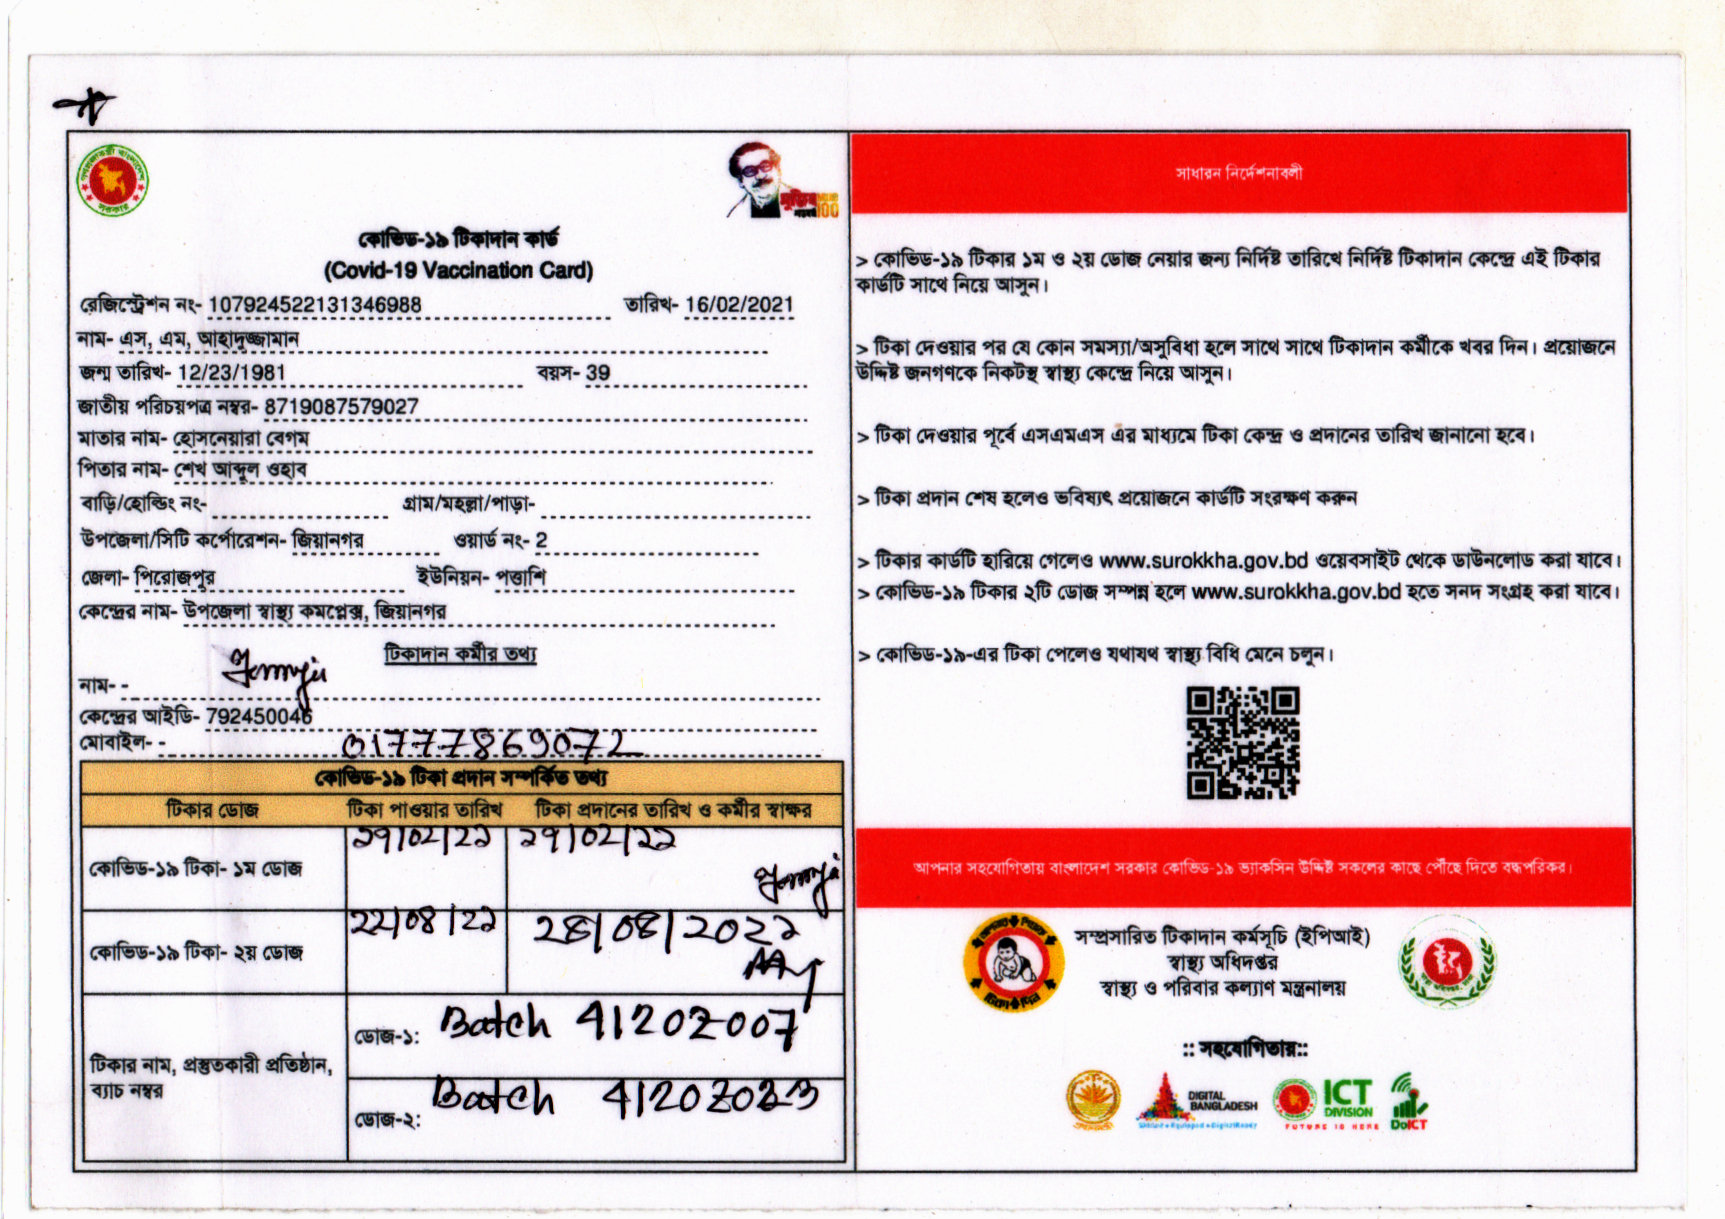 কোভিড-১৯ টিকাদান কার্ড
(Covid-19 Vaccination Card)
রেজিস্ট্রেশন নং- 107924522131346988 তারিখ- 16/02/2021
নাম- এস, এম, আহাদুজ্জামান
জন্ম তারিখ- 12/23/1981 বয়স- 39
জাতীয় পরিচয়পত্র নম্বর- 8719087579027
মাতার নাম- হোসনেয়ারা বেগম
পিতার নাম- শেখ আব্দুল ওহাব
বাড়ি/হোল্ডিং নং- গ্রাম/মহল্লা/পাড়া-
উপজেলা/সিটি কর্পোরেশন- জিয়ানগর ওয়ার্ড নং- 2
জেলা- পিরোজপুর ইউনিয়ন- পত্তাশি
কেন্দ্রের নাম- উপজেলা স্বাস্থ্য কমপ্লেক্স, জিয়ানগর
টিকাদান কর্মীর তথ্য
নাম- -
কেন্দ্রের আইডি- 792450046
মোবাইল- - 01777869072
কোভিড-১৯ টিকা প্রদান সম্পর্কিত তথ্য
টিকার ডোজ টিকা পাওয়ার তারিখ টিকা প্রদানের তারিখ ও কর্মীর স্বাক্ষর
কোভিড-১৯ টিকা- ১ম ডোজ
কোভিড-১৯ টিকা- ২য় ডোজ 22/08/22 28/08/2022
টিকার নাম, প্রস্তুতকারী প্রতিষ্ঠান,
ব্যাচ নম্বর
ডোজ-১: Batch 41202007
ডোজ-২: Batch
সাধারন নির্দেশনাবলী
> কোভিড-১৯ টিকার ১ম ও ২য় ডোজ নেয়ার জন্য নির্দিষ্ট তারিখে নির্দিষ্ট টিকাদান কেন্দ্রে এই টিকার
কার্ডটি সাথে নিয়ে আসুন।
> টিকা দেওয়ার পর যে কোন সমস্যা/অসুবিধা হলে সাথে সাথে টিকাদান কর্মীকে খবর দিন। প্রয়োজনে
উদ্দিষ্ট জনগণকে নিকটস্থ স্বাস্থ্য কেন্দ্রে নিয়ে আসুন।
> টিকা দেওয়ার পূর্বে এসএমএস এঁর মাধ্যমে টিকা কেন্দ্র ও প্রদানের তারিখ জানানো হবে।
> টিকা প্রদান শেষ হলেও ভবিষ্যৎ প্রয়োজনে কার্ডটি সংরক্ষণ করুন
> টিকার কার্ডটি হারিয়ে গেলেও www.surokkha.gov.bd ওয়েবসাইট থেকে ডাউনলোড করা যাবে।
> কোভিড-১৯ টিকার ২টি ডোজ সম্পন্ন হলে www.surokkha.gov.bd হতে সনদ সংগ্রহ করা যাবে।
> কোভিড-১৯-এর টিকা পেলেও যথাযথ স্বাস্থ্য বিধি মেনে চলুন।
আপনার সহযোগিতায় বাংলাদেশ সরকার কোভিড-১৯ ভ্যাকসিন উদ্দিষ্ট সকলের কাছে পৌঁছে দিতে বদ্ধপরিকর।
সম্প্রসারিত টিকাদান কর্মসূচি (ইপিআই)
স্বাস্থ্য অধিদপ্তর
স্বাস্থ্য ও পরিবার কল্যাণ মন্ত্রনালয়
:: সহযোগিতায়::
DIGITAL
BANGLADESH
ICT
DIVISION
FUTURE IS HERE
DoICT